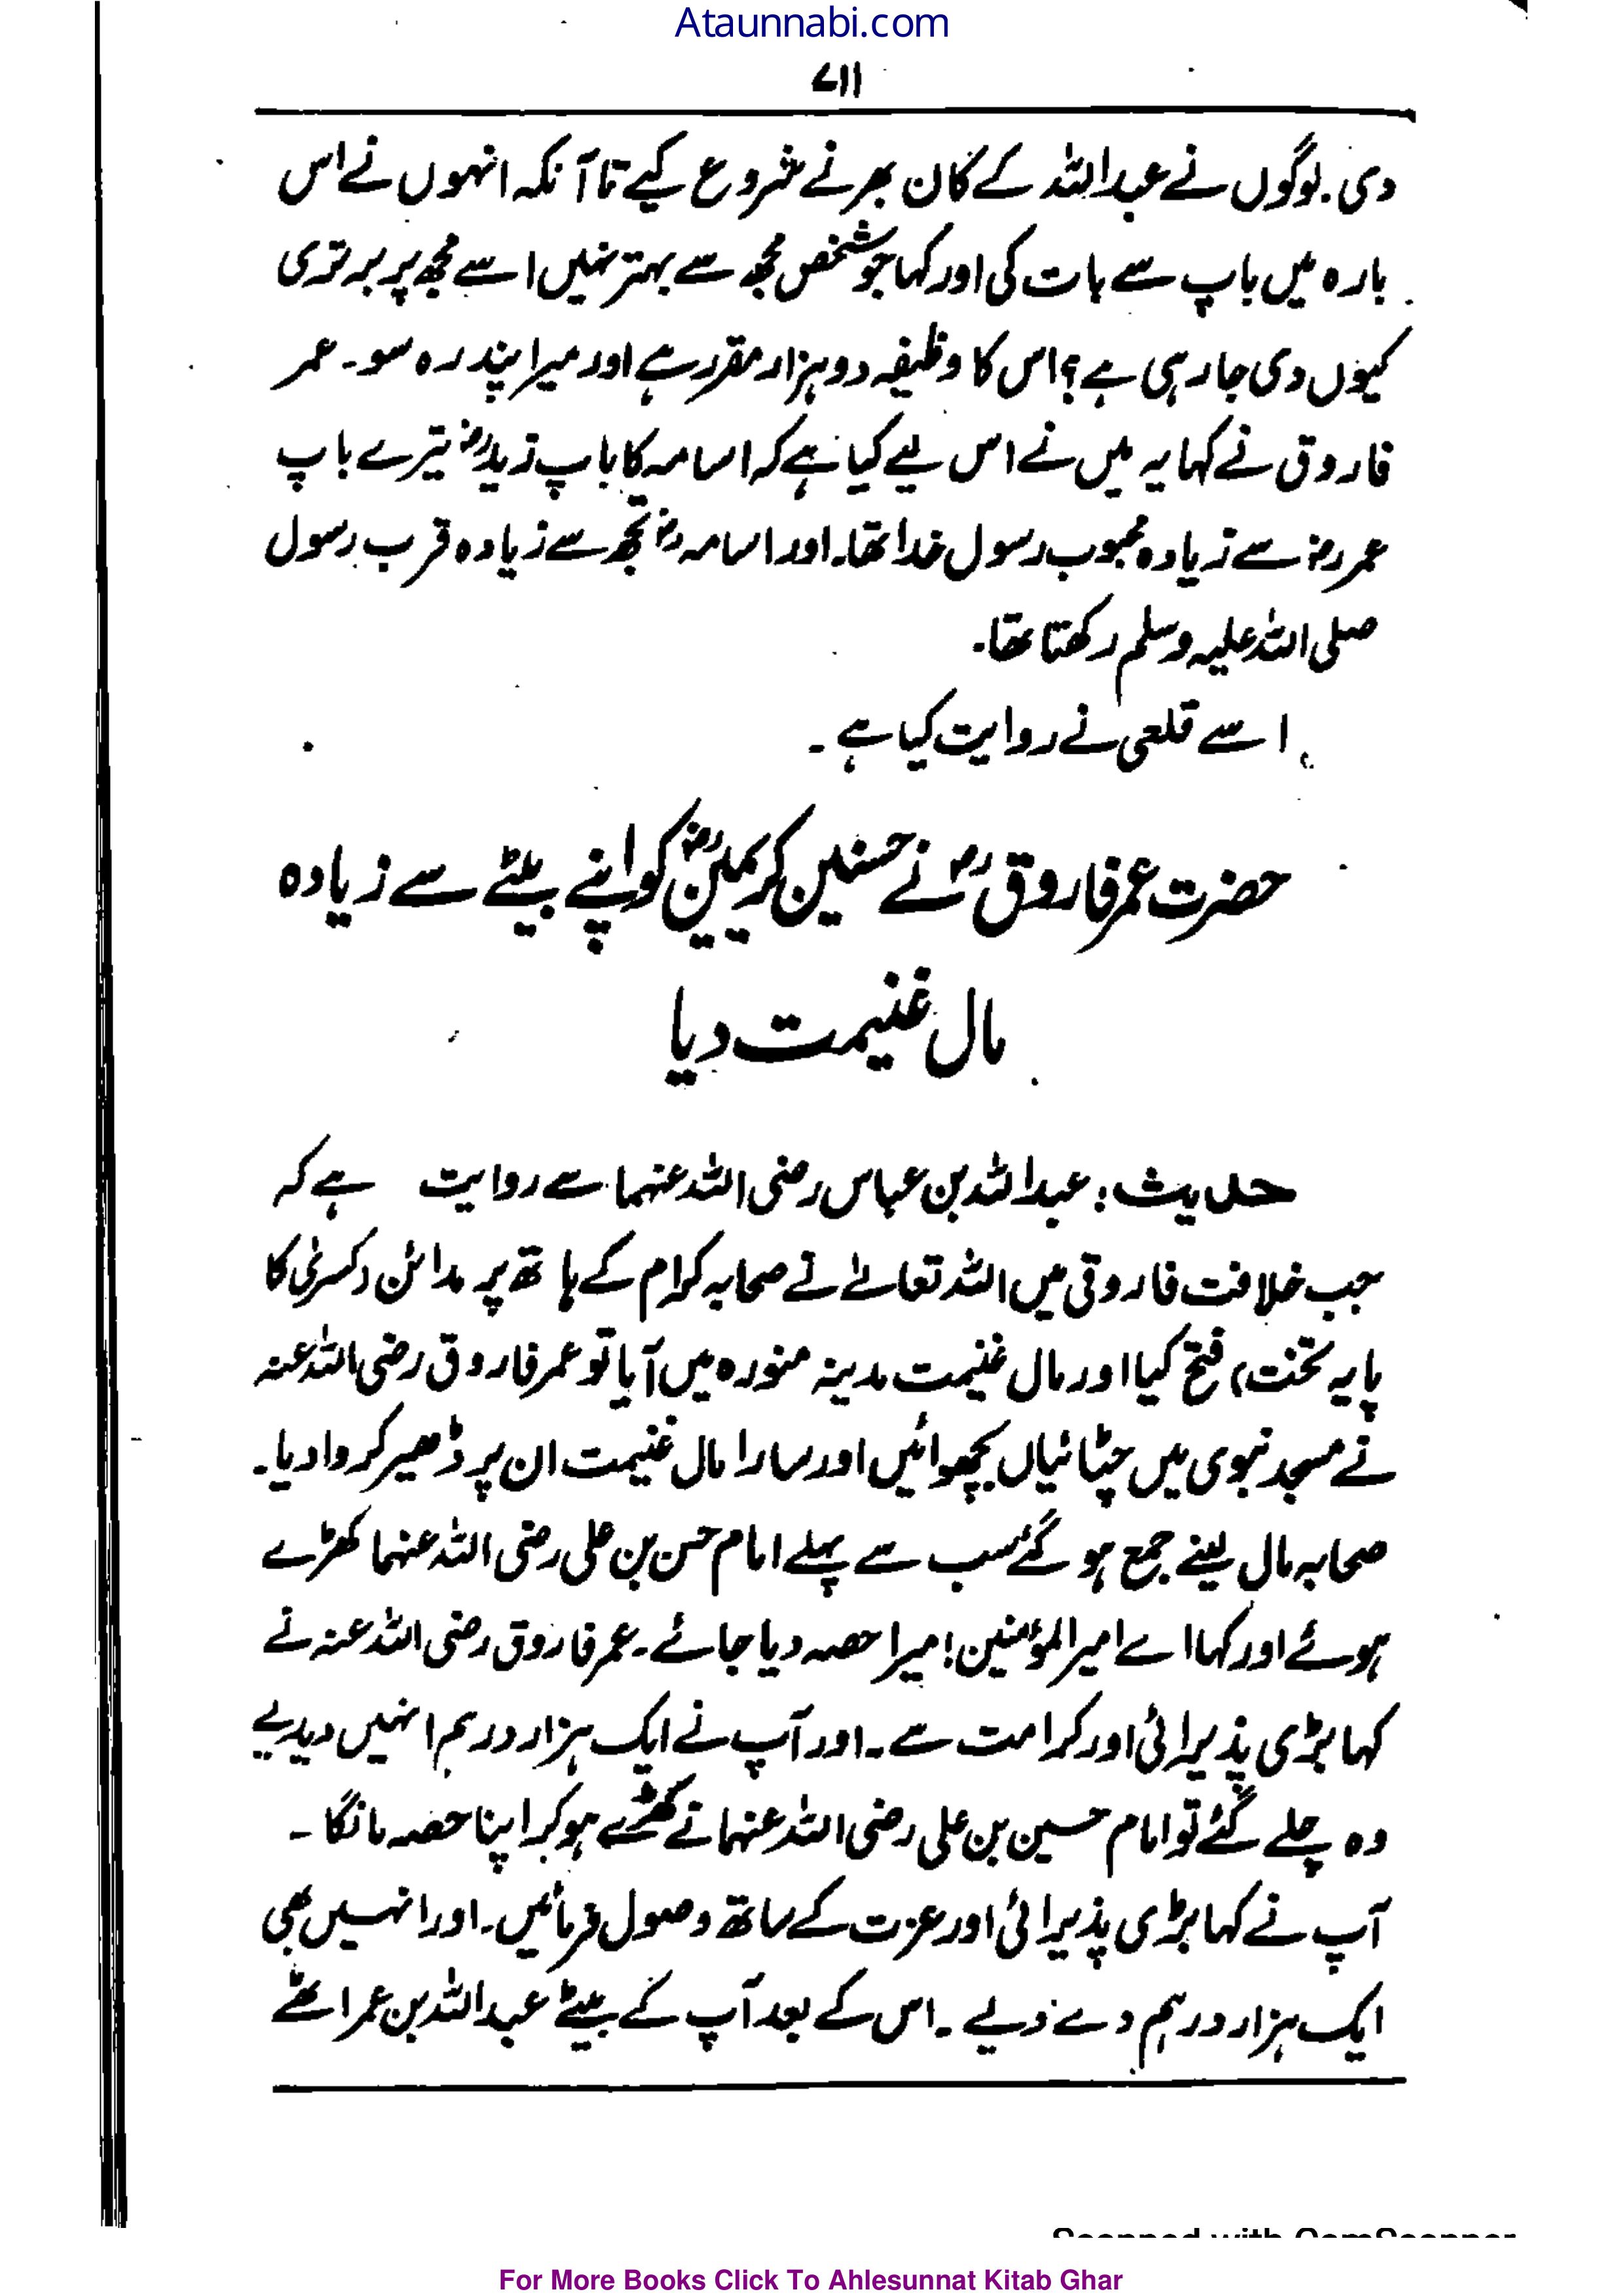 Ataunnabi.com
۷۱۱
دی۔ لوگوں نے عبداللہ کے کان بھرنے شروع کیے تا آنکہ انہوں نے اس
بارہ میں باپ سے بات کی اور کہا جو شخص مجھ سے بہتر نہیں اسے مجھ پر برتری
کیوں دی جا رہی ہے؟ اس کا وظیفہ دو ہزار مقرر ہے اور میرا پندرہ سو۔ عمر
فاروق نے کہا یہ میں نے اس لیے کیا ہے کہ اسامہ کا باپ زیدؓ تیرے باپ
عمرؓ سے زیادہ محبوب رسول خدا تھا۔ اور اسامہؓ تجھ سے زیادہ قرب رسول
صلی اللہ علیہ وسلم رکھتا تھا۔
اسے قلعی نے روایت کیا ہے۔
حضرت عمر فاروقؓ نے حسنین کریمینؓ کو اپنے بیٹے سے زیادہ
مال غنیمت دیا
حدیث: عبداللہ بن عباس رضی اللہ عنہما سے روایت ہے کہ
جب خلافت فاروقی میں اللہ تعالےٰ نے صحابہ کرام کے ہاتھ پر مدائن (کسریٰ کا
پایہ تخت) فتح کیا اور مال غنیمت مدینہ منورہ میں آیا تو عمر فاروق رضی اللہ عنہ
نے مسجد نبوی میں چٹائیاں بچھوائیں اور سارا مال غنیمت ان پر ڈھیر کروا دیا۔
صحابہ مال لینے جمع ہو گئے سب سے پہلے امام حسن بن علی رضی اللہ عنہما کھڑے
ہوئے اور کہا اے امیرالمؤمنین! میرا حصہ دیا جائے۔ عمر فاروق رضی اللہ عنہ نے
کہا بڑی پذیرائی اور کرامت سے۔ اور آپ نے ایک ہزار درہم انہیں دیدیے
وہ چلے گئے تو امام حسین بن علی رضی اللہ عنہما نے کھڑے ہو کر اپنا حصہ مانگا۔
آپ نے کہا بڑی پذیرائی اور عزت کے ساتھ وصول فرمائیں۔ اور انہیں بھی
ایک ہزار درہم دے دیے۔ اس کے بعد آپ کے بیٹے عبداللہ بن عمر اٹھے
Scanned with CamScanner
For More Books Click To Ahlesunnat Kitab Ghar